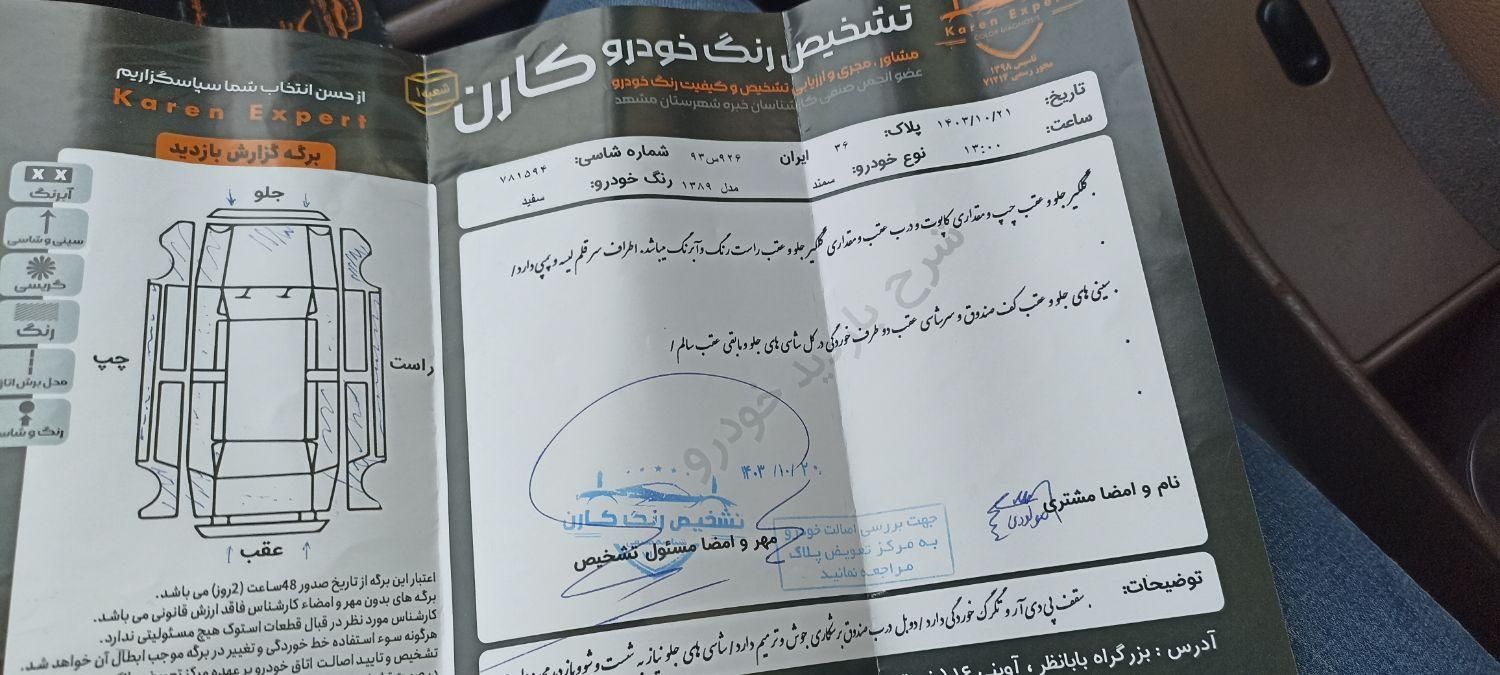 تشخیص رنگ خودرو کارن
مشاور ، مجری و ارزیابی تشخیص و کیفیت رنگ خودرو
عضو انجمن صنفی کارشناسان خبره شهرستان مشهد
Karen Expert
COLOR DIAGNOSIS
تاسیس ۱۳۹۸
مجوز رسمی ۷۱۲۱۳
شعبه ۱
تاریخ: ۱۴۰۳/۱۰/۲۱ پلاک: ۳۶ ایران ۹۲۶س۹۳ شماره شاسی: ۷۸۱۵۹۴
ساعت: ۱۳:۰۰ نوع خودرو: سمند مدل ۱۳۸۹ رنگ خودرو: سفید
. گلگیر جلو و عقب چپ و مقداری کاپوت و درب عقب و مقداری گلگیر جلو و عقب راست رنگ و آبرنگ میباشد، اطراف سر قلم لیسه و پمپی دارد/
. سینی های جلو و عقب کف صندوق و سرشاسی عقب دو طرف خوردگی در کل شاسی های جلو و مابقی عقب سالم /
شرح بازدید خودرو
نام و امضا مشتری
۱۴۰۳/۱۰/۲۰
تشخیص رنگ کارن
مهر و امضا مسئول تشخیص
جهت بررسی اصالت خودرو
به مرکز تعویض پلاک
مراجعه نمائید
توضیحات:
. سقف پی دی آر و تگرگ خوردگی دارد / دوبل درب صندوق بر شکاری جوش و ترمیم دارد / شاسی های جلو نیاز به شست و شو و بازدید
آدرس : بزرگراه بابانظر ، آوینی
از حسن انتخاب شما سپاسگزاریم
Karen Expert
برگه گزارش بازدید
X X
آبرنگ
سینی و شاسی
گریسی
رنگ
محل برش اتاق
رنگ و شاسی
جلو
چپ
راست
عقب
اعتبار این برگه از تاریخ صدور 48ساعت (2روز) می باشد.
برگه های بدون مهر و امضاء کارشناس فاقد ارزش قانونی می باشد.
کارشناس مورد نظر در قبال قطعات استوک هیچ مسئولیتی ندارد.
هرگونه سوء استفاده خط خوردگی و تغییر در برگه موجب ابطال آن خواهد شد.
تشخیص و تایید اصالت اتاق خودرو بر عهده مرکز